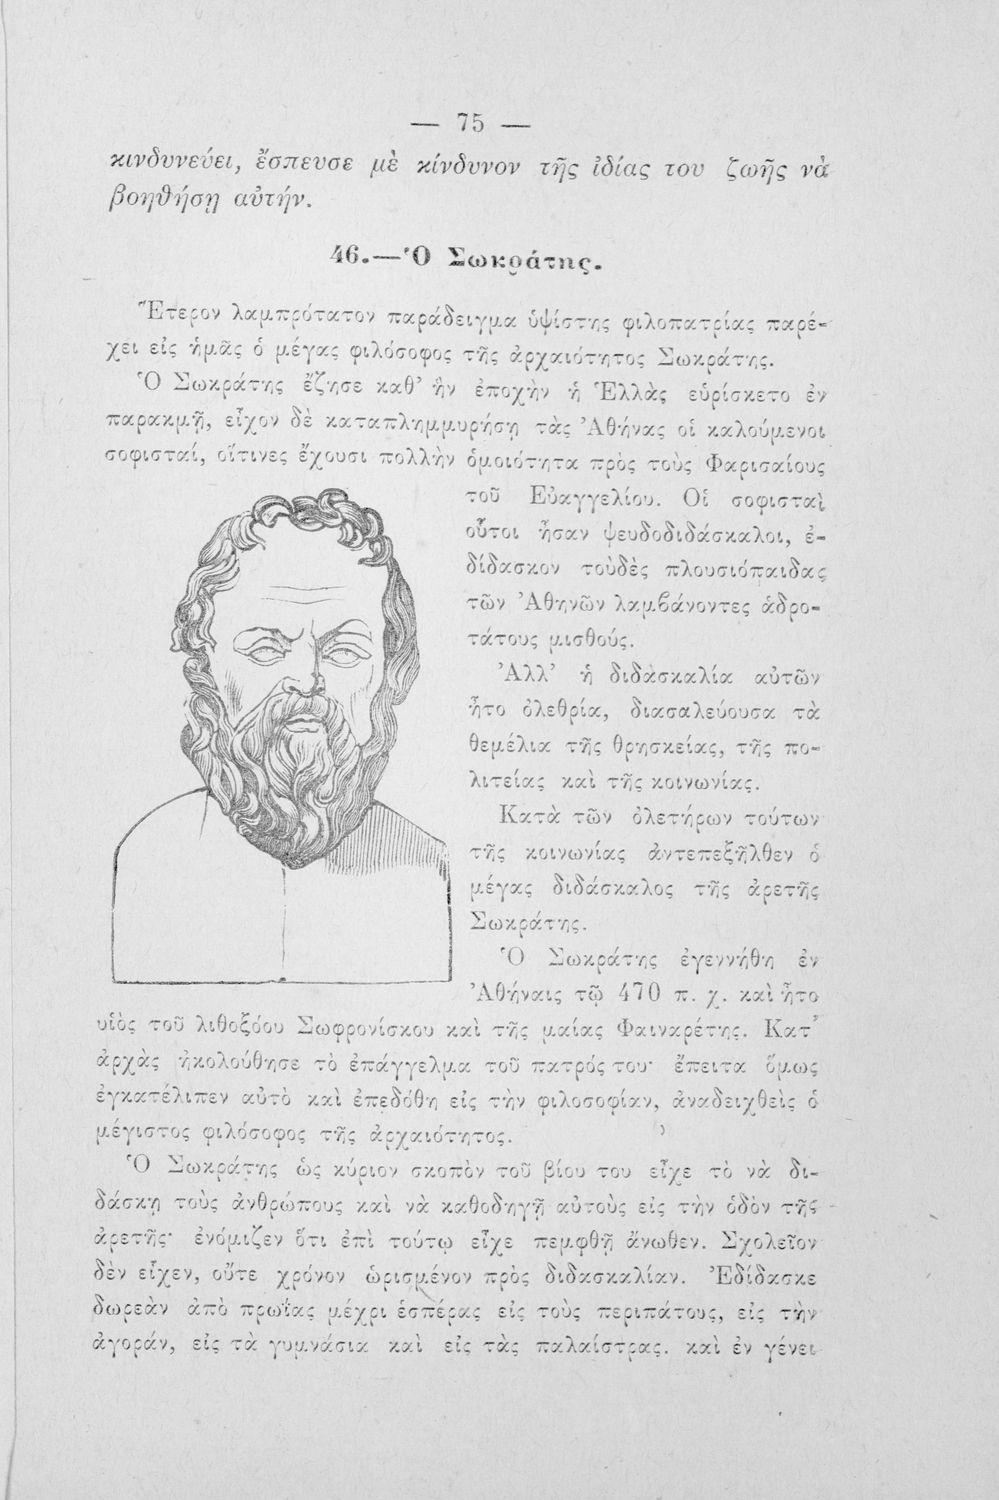 — 75 —
κινδυνεύει, ἔσπευσε μὲ κίνδυνον τῆς ἰδίας του ζωῆς νὰ
βοηθήσῃ αὐτήν.
46.—Ὁ Σωκράτης.
Ἕτερον λαμπρότατον παράδειγμα ὑψίστης φιλοπατρίας παρέ-
χει εἰς ἡμᾶς ὁ μέγας φιλόσοφος τῆς ἀρχαιότητος Σωκράτης.
Ὁ Σωκράτης ἔζησε καθ' ἣν ἐποχὴν ἡ Ἑλλὰς εὑρίσκετο ἐν
παρακμῇ, εἶχον δὲ καταπλημμυρήσῃ τὰς Ἀθήνας οἱ καλούμενοι
σοφισταί, οἵτινες ἔχουσι πολλὴν ὁμοιότητα πρὸς τοὺς Φαρισαίους
τοῦ Εὐαγγελίου. Οἱ σοφισταὶ
οὗτοι ἦσαν ψευδοδιδάσκαλοι, ἐ-
δίδασκον τοὺδὲς πλουσιόπαιδας
τῶν Ἀθηνῶν λαμβάνοντες ἁδρο-
τάτους μισθούς.
Ἀλλ' ἡ διδασκαλία αὐτῶν
ἦτο ὀλεθρία, διασαλεύουσα τὰ
θεμέλια τῆς θρησκείας, τῆς πο-
λιτείας καὶ τῆς κοινωνίας.
Κατὰ τῶν ὀλετήρων τούτων
τῆς κοινωνίας ἀντεπεξῆλθεν ὁ
μέγας διδάσκαλος τῆς ἀρετῆς
Σωκράτης.
Ὁ Σωκράτης ἐγεννήθη ἐν
Ἀθήναις τῷ 470 π. χ. καὶ ἦτο
υἱὸς τοῦ λιθοξόου Σωφρονίσκου καὶ τῆς μαίας Φαιναρέτης. Κατ'
ἀρχὰς ἠκολούθησε τὸ ἐπάγγελμα τοῦ πατρός του· ἔπειτα ὅμως
ἐγκατέλιπεν αὐτὸ καὶ ἐπεδόθη εἰς τὴν φιλοσοφίαν, ἀναδειχθεὶς ὁ
μέγιστος φιλόσοφος τῆς ἀρχαιότητος.
Ὁ Σωκράτης ὡς κύριον σκοπὸν τοῦ βίου του εἶχε τὸ νὰ δι-
δάσκῃ τοὺς ἀνθρώπους καὶ νὰ καθοδηγῇ αὐτοὺς εἰς τὴν ὁδὸν τῆς
ἀρετῆς· ἐνόμιζεν ὅτι ἐπὶ τούτῳ εἶχε πεμφθῇ ἄνωθεν. Σχολεῖον
δὲν εἶχεν, οὔτε χρόνον ὡρισμένον πρὸς διδασκαλίαν. Ἐδίδασκε
δωρεὰν ἀπὸ πρωΐας μέχρι ἑσπέρας εἰς τοὺς περιπάτους, εἰς τὴν
ἀγοράν, εἰς τὰ γυμνάσια καὶ εἰς τὰς παλαίστρας. καὶ ἐν γένει